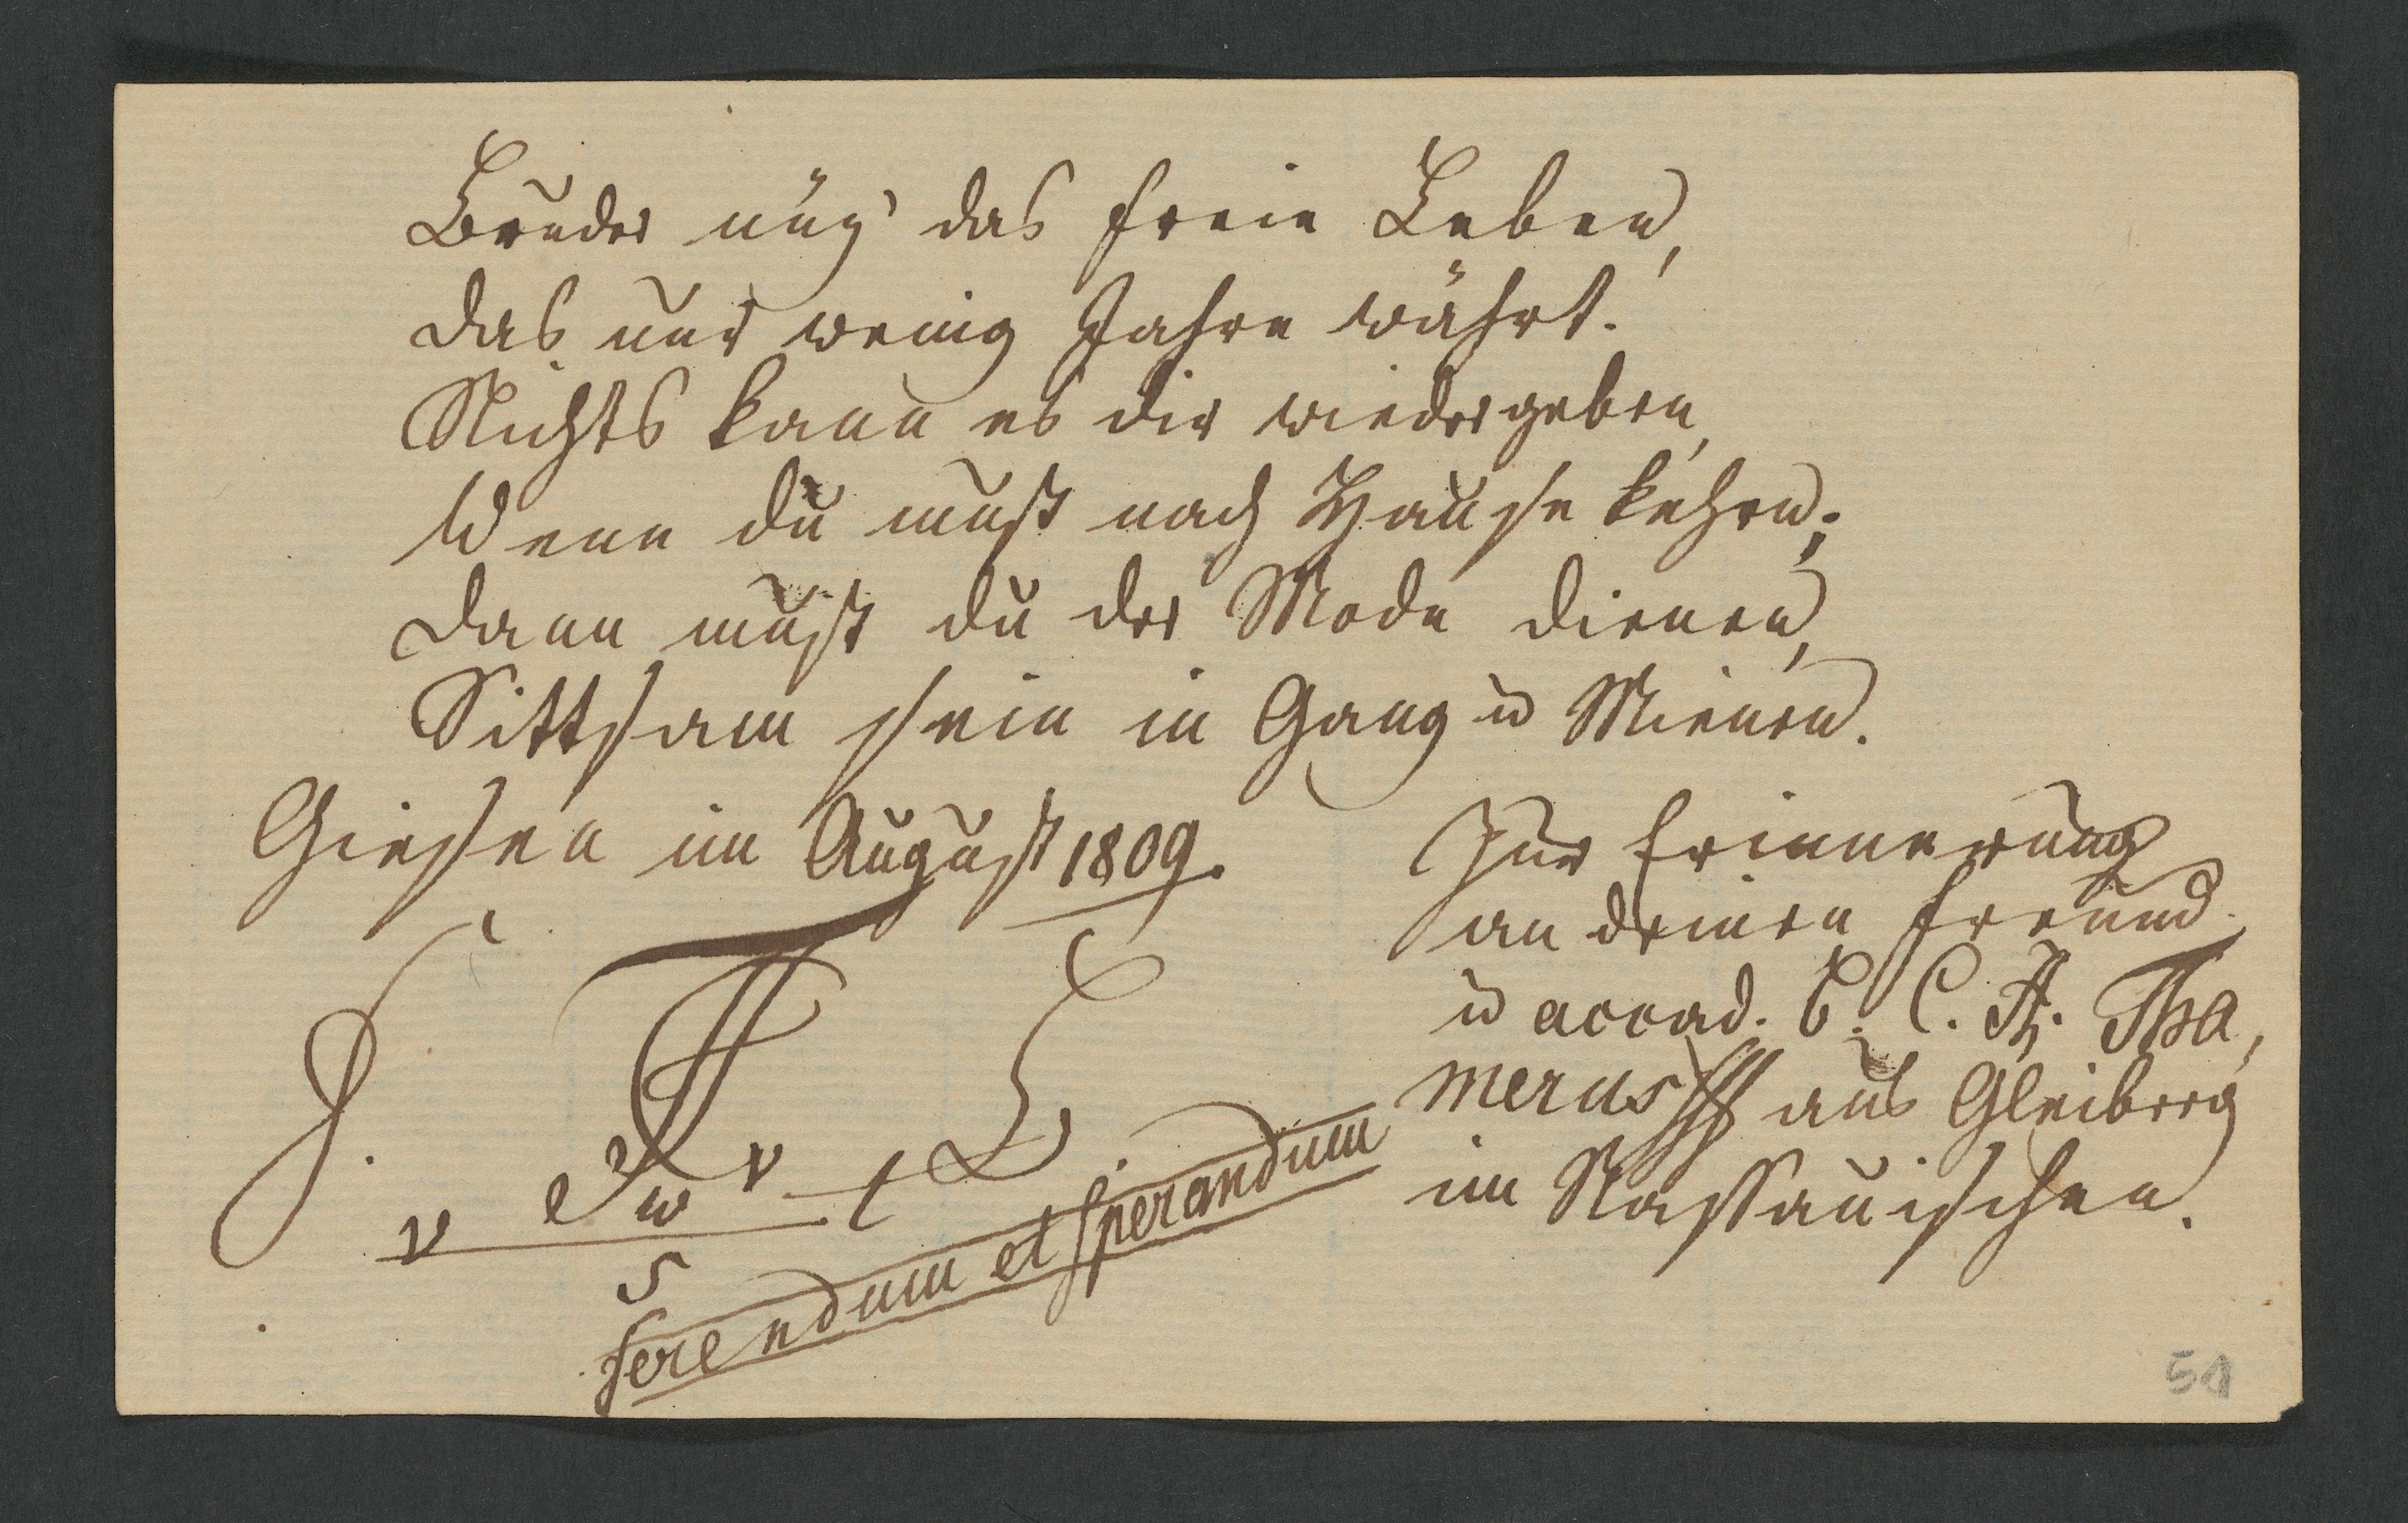 Bruder nüz' das freie Leben,
Das nur wenig Jahre währt.
Nichts kann es dir wiedergeben,
Wenn du must nach Hause kehrn;
Dann must du der Mode dienen,
Sittsam sein in Gang u Mienen.
Giesen im August 1809.
Zur Erinnerung
an deinen Freund
u accad. B. C. Th. Tha,
merus aus Gleiberg
im Nassauischen.
J.
v w v t
5
ferendum et sperandum
51